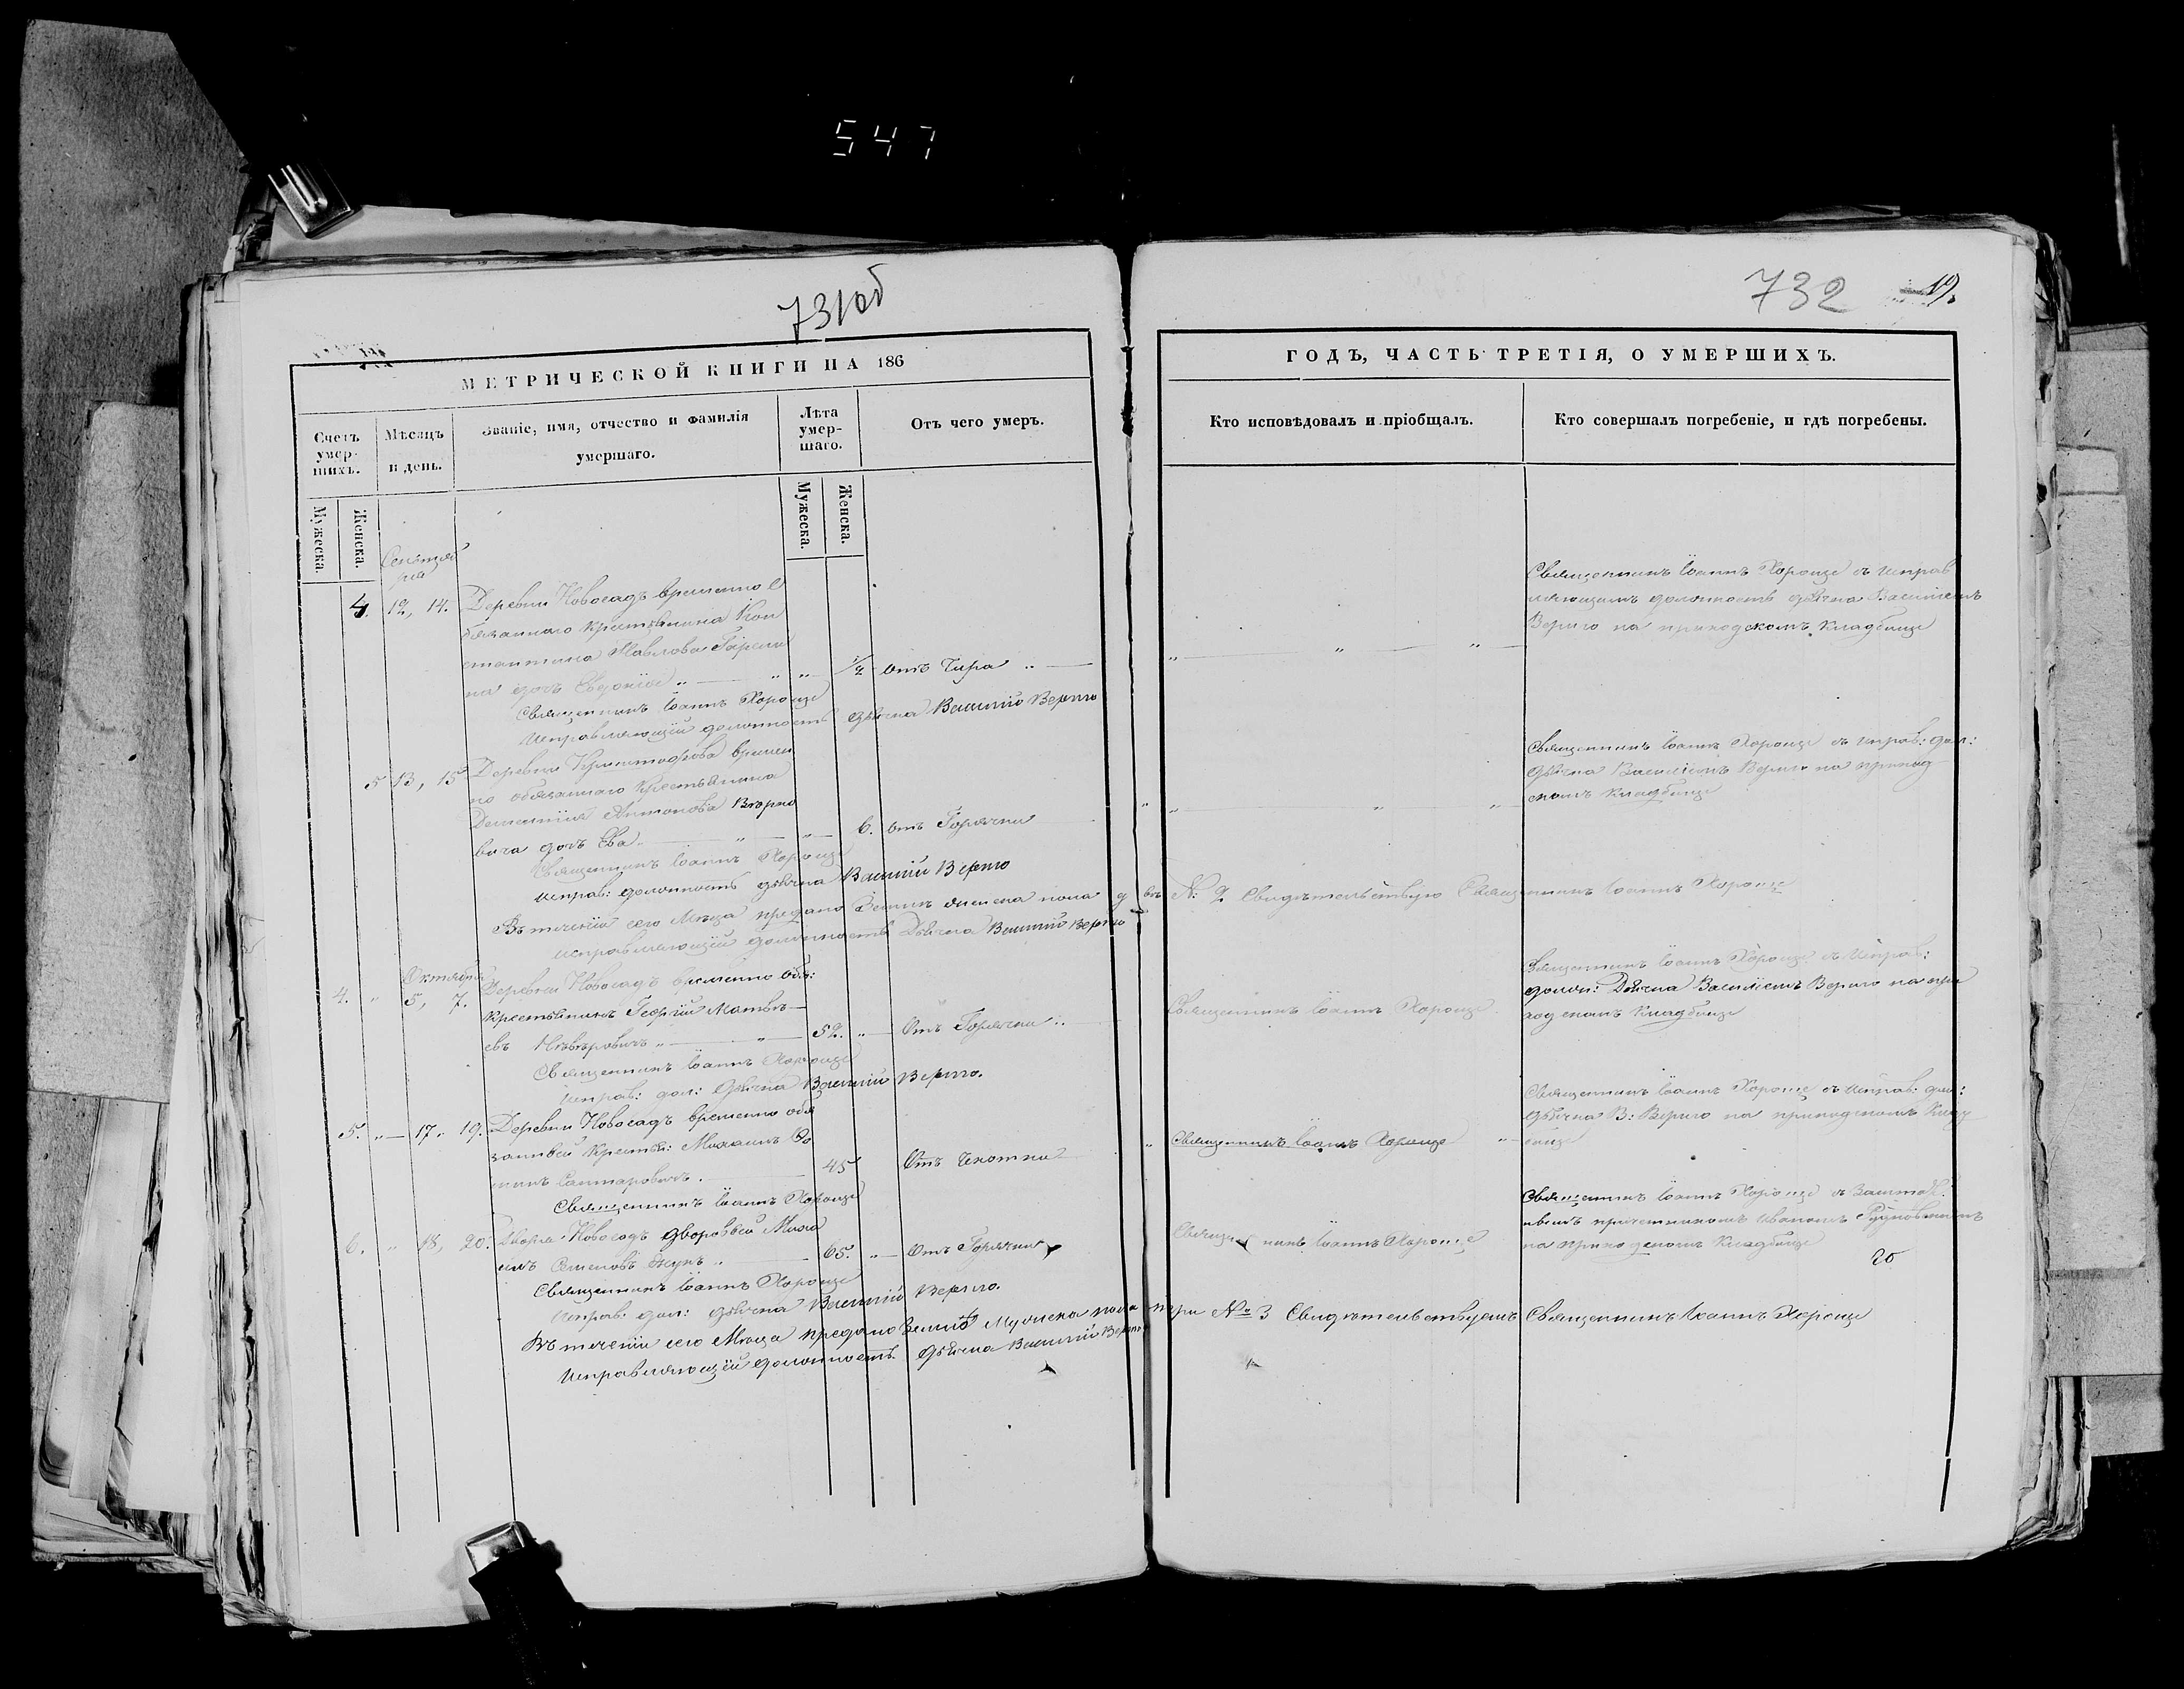 547
731об
732 19.
МЕТРИЧЕСКОЙ КНИГИ НА 186
ГОДЪ, ЧАСТЬ ТРЕТІЯ, О УМЕРШИХЪ.
Счетъ умер-
шихъ.
Мѣсяцъ
и день.
Званіе, имя, отчество и фамилія
умершаго.
Лѣта
умер-
шаго.
Отъ чего умеръ.
Кто исповѣдовалъ и пріобщалъ.
Кто совершалъ погребеніе, и гдѣ погребены.
Мужеска.
Женска.
Мужеска.
Женска.
Сентяб
ря
4. 12, 14. Деревни Новосадъ временно о
бязаннаго крестьянина Кон
стантина Павлова
на дочь Евдокія „ „ „ 1/2 отъ
Священникъ Іоаннъ Хороще
Исправляющій должность дьячка Василій Верыго
Священникъ Іоаннъ Хороще съ исправ
ляющимъ должность дьячка Василіемъ
Верыго на приходскомъ кладбище
5 13, 15 Деревни времен
но обязаннаго крестьянина
Антонова
вича дочь Ева „ „ 6. отъ Горячки
Священникъ Іоаннъ Хороще
исправ: должность дьячка Василій Верыго
Священникъ Іоаннъ Хороще съ исправ: дол:
дьячка Василіемъ Верыго на приход
скомъ кладбище
Въ теченіи сего Мѣца предано Земли женска пола двѣ №: 2 Свидѣтельствую Священникъ Іоаннъ Хороще
исправляющій должность Дьячка Василій Верыго
Октября
4. „ 5, 7. Деревни Новосадъ временно обя:
крестьянинъ Георгій Матвѣ—
евъ „ „ 52. „ Отъ Горячки
Священникъ Іоаннъ Хороще
исправ: дол: Дьячка Василій Верыго.
Священникъ Іоаннъ Хороще
Священникъ Іоаннъ Хороще съ исправ:
должн: Дьячка Василіемъ Верыго на при
ходскомъ кладбище
5. „ 17, 19. Деревни Новосадъ временно обя
занный крестья:
45 Отъ Чехотки
Священникъ Іоаннъ Хороще
Священникъ Іоаннъ Хороще
Священникъ Іоаннъ Хороще съ исправ: дол:
дьячка В: Верыго на приходскомъ клад
бище
6. „ 18, 20. Двора Новосадъ дворовый Миха
илъ Семеновъ 65. „ Отъ Горячки
Священникъ Іоаннъ Хороще
Исправ: дол: дьячка Василій Верыго.
Священникъ Іоаннъ Хороще
Священникъ Іоаннъ Хороще съ
причетникомъ Иваномъ
на приходскомъ кладбище
Въ теченіи сего Мѣца предано Земли Мужска пола три № 3 Свидѣтельствуемъ Священникъ Іоаннъ Хороще
Исправляющій должность дьячка Василій Верыго